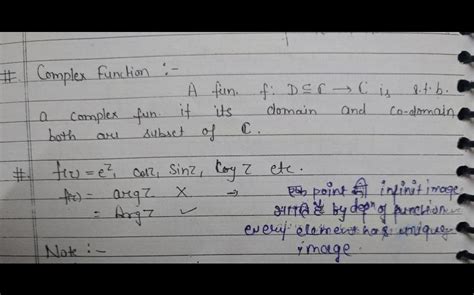 # Complex Function :-
A fun. f: D ⊆ ℂ → ℂ is s.t.b.
a complex fun if its domain and co-domain
both are subset of ℂ.
# f(z) = e^z, cosz, sinz, Logz etc.
f(z) = argz X → एक point की infinit image
= Argz ✓ by depⁿ of function
every element has unique
image.
Note :-